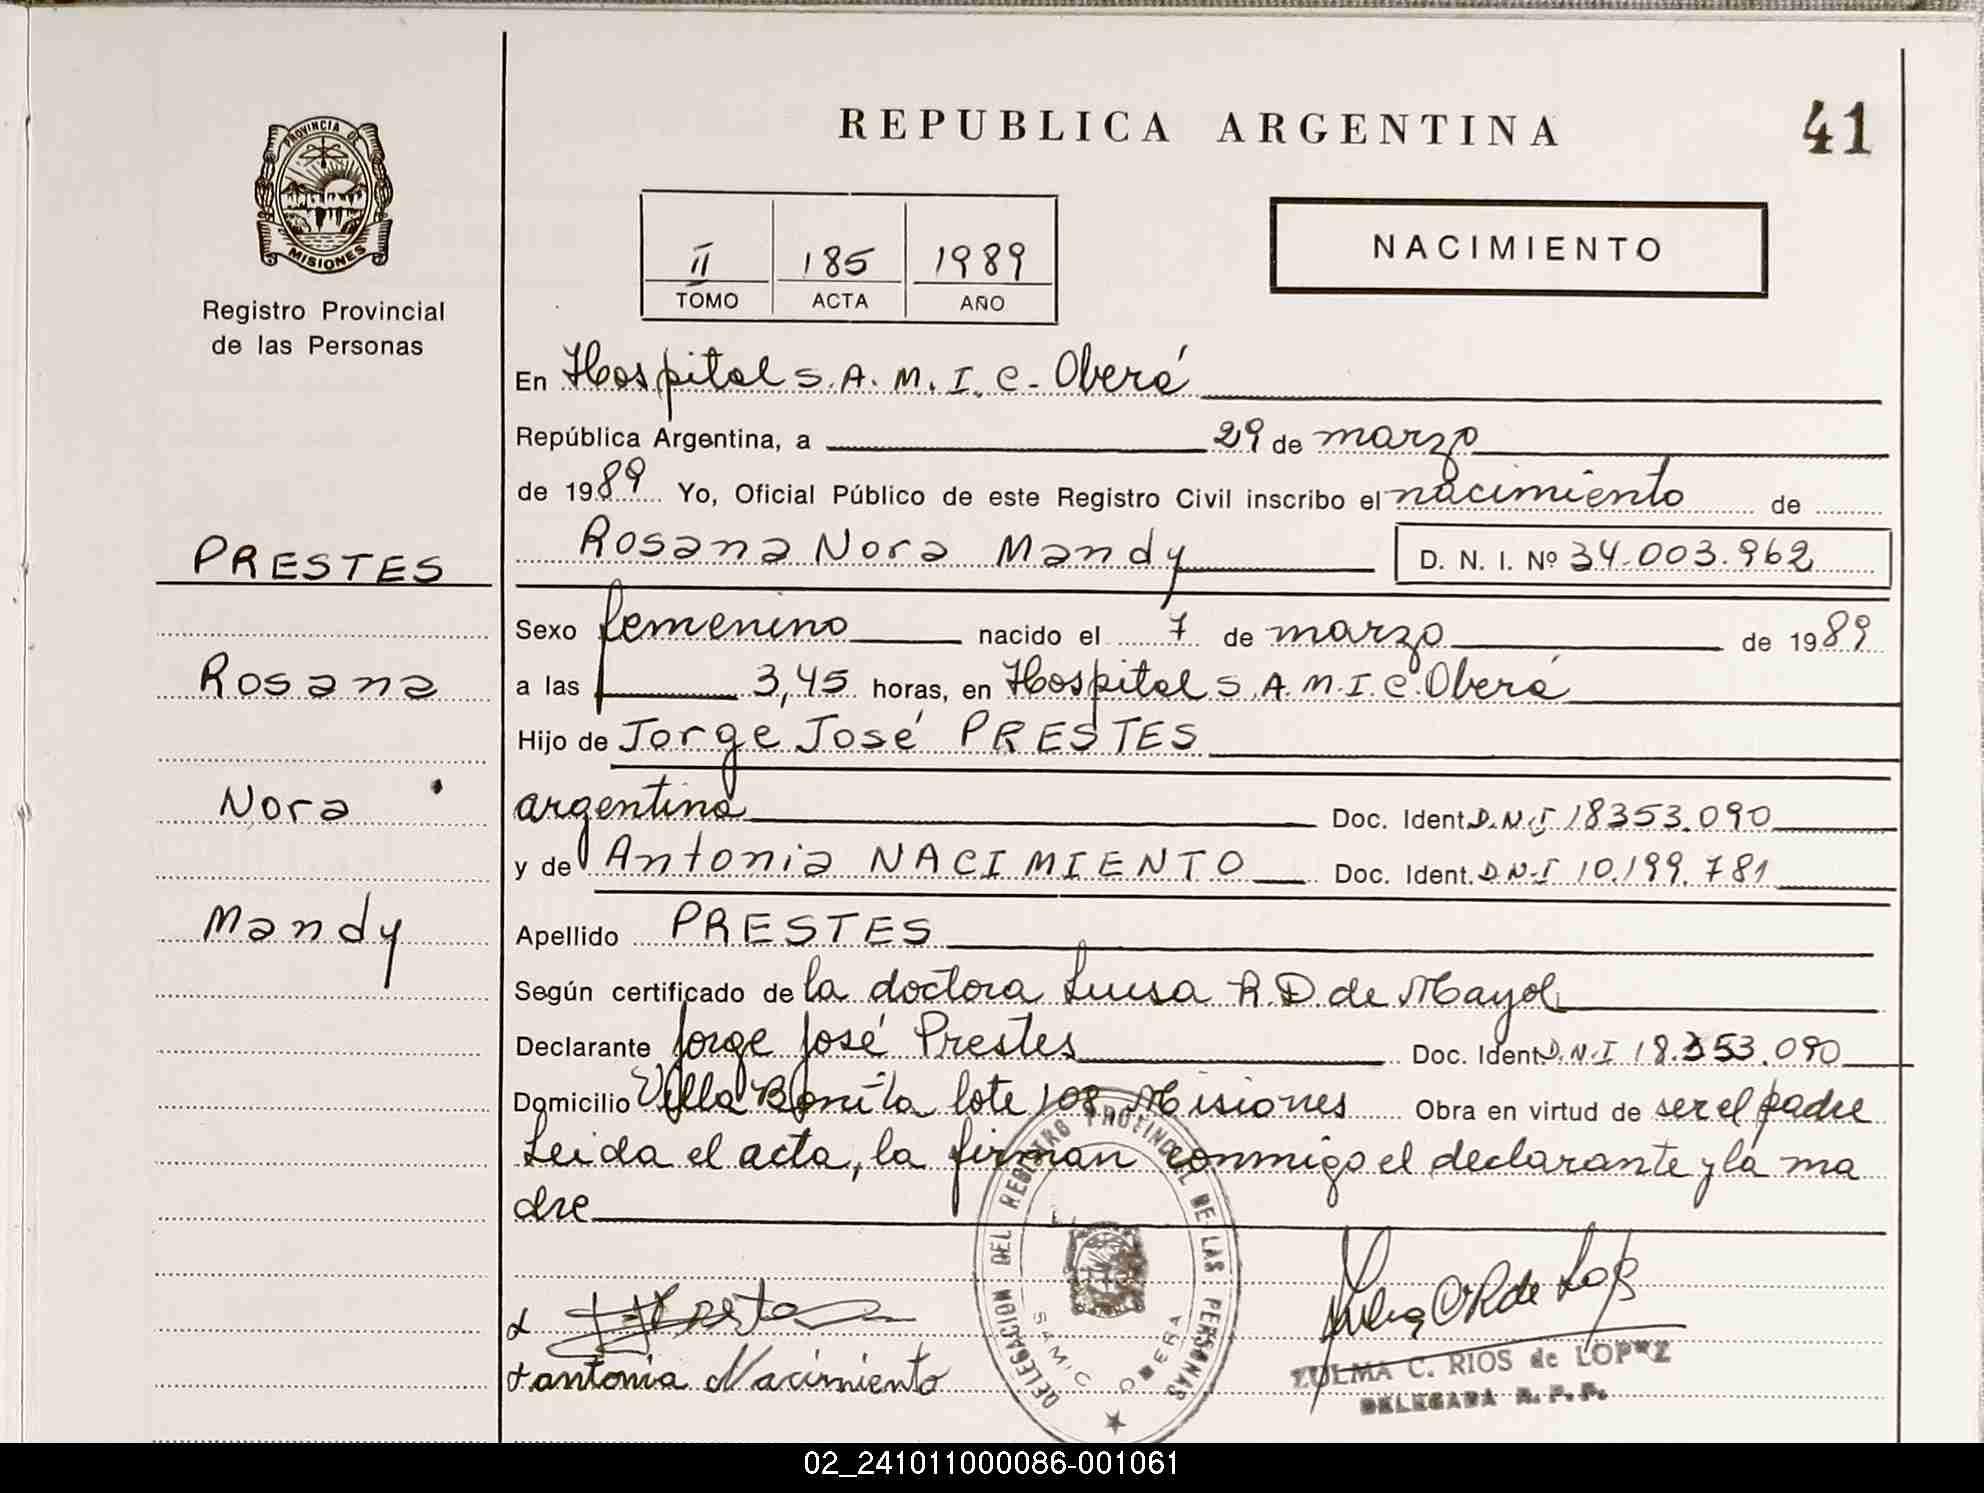 REPUBLICA ARGENTINA
41
PROVINCIA DE
MISIONES
Registro Provincial
de las Personas
II 185 1989
TOMO ACTA AÑO
NACIMIENTO
En Hospital S.A.M.I.C. - Oberá
República Argentina, a 29 de marzo
de 1989 Yo, Oficial Público de este Registro Civil inscribo el nacimiento de
PRESTES
Rosana Nora Mandy D. N. I. Nº 34.003.962
Sexo femenino nacido el 7 de marzo de 1989
Rosana
a las 3,45 horas, en Hospital S.A.M.I.C. Oberá
Hijo de Jorge José PRESTES
Nora
argentina Doc. Ident. D.N.I 18353.090
y de Antonia NACIMIENTO Doc. Ident. D.N.I 10.199.781
Mandy
Apellido PRESTES
Según certificado de la doctora Luisa R.D. de Mayol
Declarante Jorge José Prestes Doc. Ident. D.N.I 18.353.090
Domicilio Villa Bonita lote 108 Misiones Obra en virtud de ser el padre
Leida el acta, la firman conmigo el declarante y la ma
dre
DELEGACION DEL REGISTRO PROVINCIAL DE LAS PERSONAS
SAMIC OBERA
Antonia Nacimiento
ZULMA C. RIOS de LOPEZ
DELEGADA R. P. P.
02_241011000086-001061